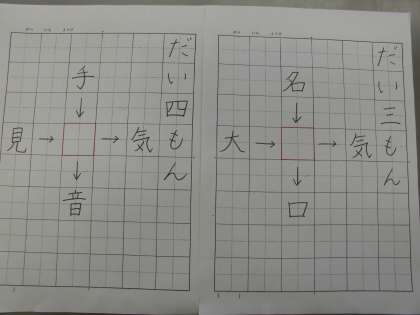 だい三もん
名
↓
大 → → 気
↓
口
だい四もん
手
↓
見 → → 気
↓
音